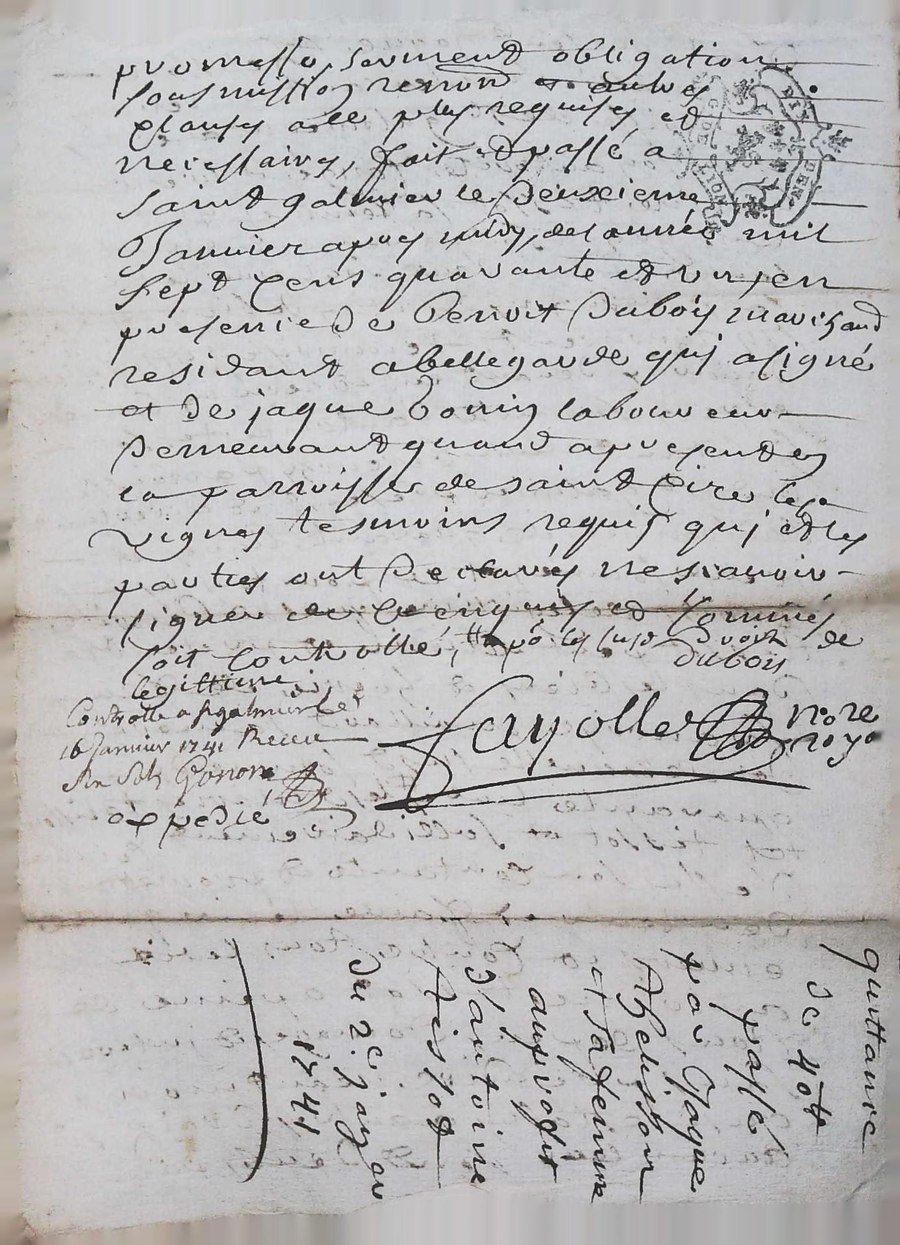 promesse, serment obligation
soumission renon et autres
clauses a ce plus requises et
necessaires, fait et passé a
saint galmier le deuxieme
Janvier apres midy, de l'année mil
sept cens quarante et un, en
presence de Benoit Duboys marchand
residant a bellegarde qui a signé
et de jaque bonin laboureur
demeurant quand a present en
la parroisse de saint Cire les
vignes tesmoins requis qui et les
parties ont declarés ne scavoir
signer de ce enquis et sommés
soit controllé, de
Dubois
legittime
Controlle a st galmier le
16 Janvier 1741 Receu
six sols Gonon
Fayolle nore
royal
expedié
quittance
de 40lt
passé
par Jaque
Thelisson
et sa femme
au profit
d'antoine
Tissot
du 2e janv
1741